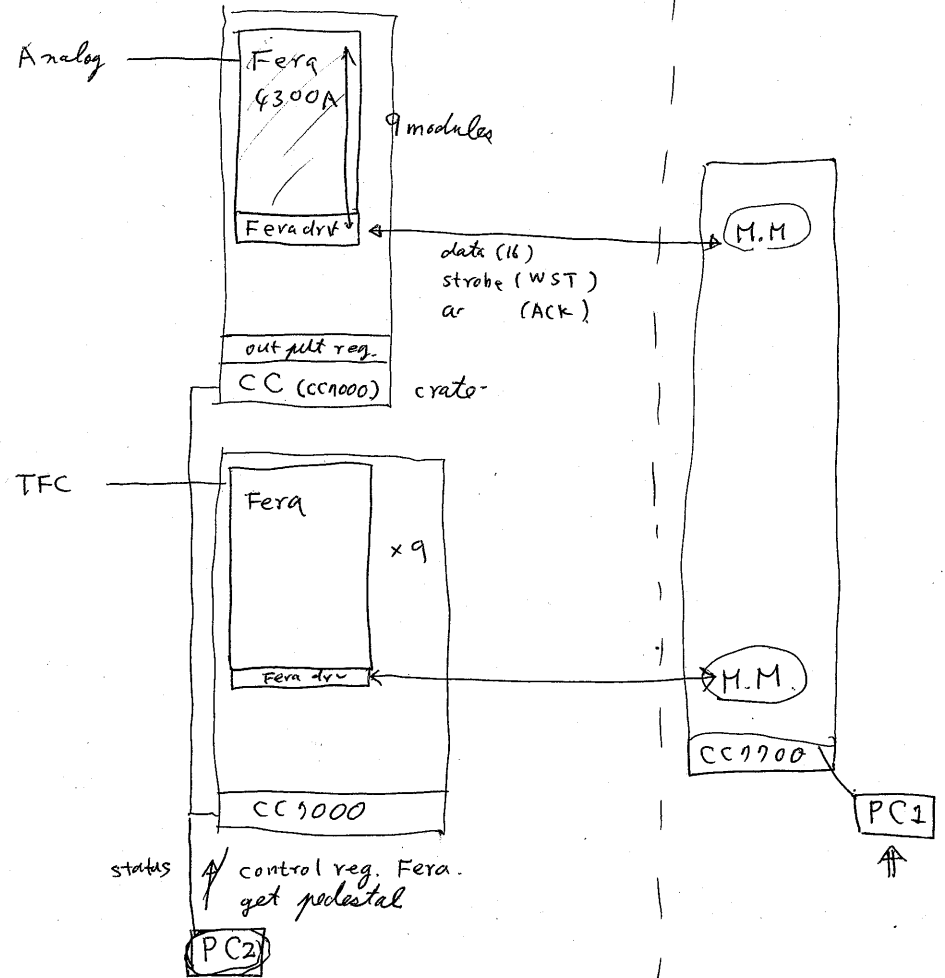 Analog
Fera
4300A
9 modules
Fera drv
data (16)
strobe (WST)
(ACK)
M.M
output reg.
CC (CC7000)
crate
TFC
Fera
x 9
Fera drv
M.M.
CC7700
PC1
CC7000
status
control reg. Fera.
get pedestal
PC2